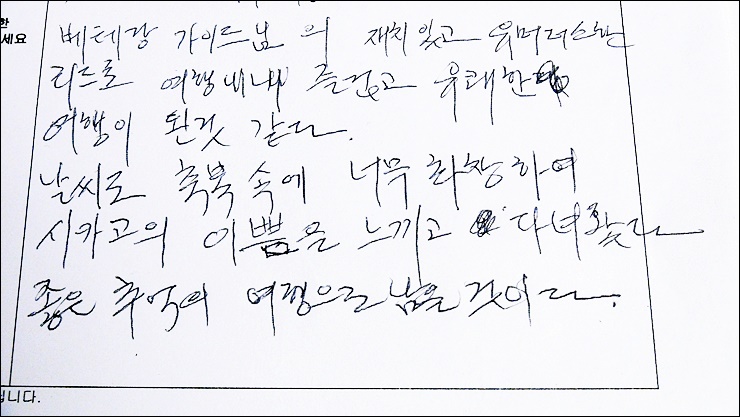 한
세요
베테랑 가이드님의 재치있고 유머러스한
리드로 여행내내 즐겁고 유쾌한
여행이 된것 같다.
날씨도 축복 속에 너무 화창하여
시카고의 이쁨을 느끼고 다녀왔다
좋은 추억의 여행으로 남을 것이다.
입니다.